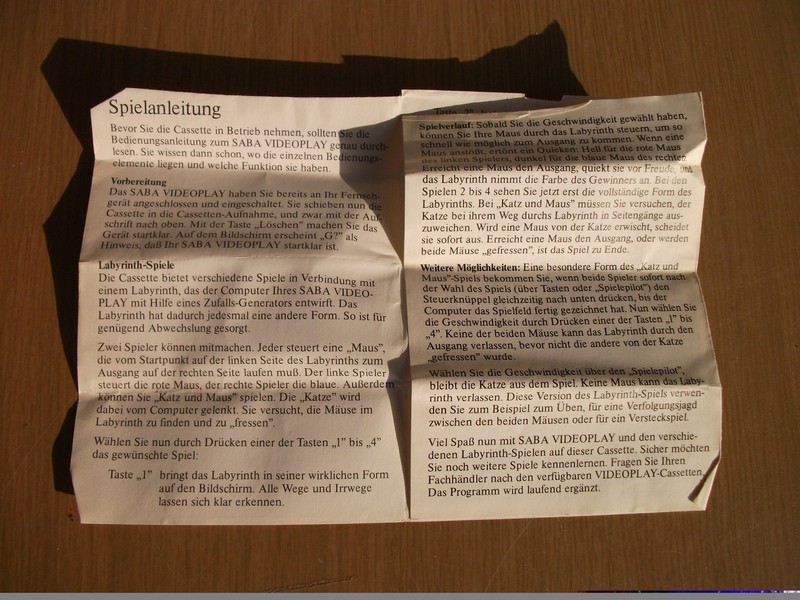 Spielanleitung
Bevor Sie die Cassette in Betrieb nehmen, sollten Sie die
Bedienungsanleitung zum SABA VIDEOPLAY genau durch-
lesen. Sie wissen dann schon, wo die einzelnen Bedienungs-
elemente liegen und welche Funktion sie haben.
Vorbereitung
Das SABA VIDEOPLAY haben Sie bereits an Ihr Fernseh-
gerät angeschlossen und eingeschaltet. Sie schieben nun die
Cassette in die Cassetten-Aufnahme, und zwar mit der Auf-
schrift nach oben. Mit der Taste „Löschen" machen Sie das
Gerät startklar. Auf dem Bildschirm erscheint „G?" als
Hinweis, daß Ihr SABA VIDEOPLAY startklar ist.
Labyrinth-Spiele
Die Cassette bietet verschiedene Spiele in Verbindung mit
einem Labyrinth, das der Computer Ihres SABA VIDEO-
PLAY mit Hilfe eines Zufalls-Generators entwirft. Das
Labyrinth hat dadurch jedesmal eine andere Form. So ist für
genügend Abwechslung gesorgt.
Zwei Spieler können mitmachen. Jeder steuert eine „Maus",
die vom Startpunkt auf der linken Seite des Labyrinths zum
Ausgang auf der rechten Seite laufen muß. Der linke Spieler
steuert die rote Maus, der rechte Spieler die blaue. Außerdem
können Sie „Katz und Maus" spielen. Die „Katze" wird
dabei vom Computer gelenkt. Sie versucht, die Mäuse im
Labyrinth zu finden und zu „fressen".
Wählen Sie nun durch Drücken einer der Tasten „1" bis „4"
das gewünschte Spiel:
Taste „1" bringt das Labyrinth in seiner wirklichen Form
auf den Bildschirm. Alle Wege und Irrwege
lassen sich klar erkennen.
Spielverlauf: Sobald Sie die Geschwindigkeit gewählt haben,
können Sie Ihre Maus durch das Labyrinth steuern, um so
schnell wie möglich zum Ausgang zu kommen. Wenn eine
Maus anstößt, ertönt ein Quieken: Hell für die rote Maus
des linken Spielers, dunkel für die blaue Maus des rechten.
Erreicht eine Maus den Ausgang, quiekt sie vor Freude, und
das Labyrinth nimmt die Farbe des Gewinners an. Bei den
Spielen 2 bis 4 sehen Sie jetzt erst die vollständige Form des
Labyrinths. Bei „Katz und Maus" müssen Sie versuchen, der
Katze bei ihrem Weg durchs Labyrinth in Seitengänge aus-
zuweichen. Wird eine Maus von der Katze erwischt, scheidet
sie sofort aus. Erreicht eine Maus den Ausgang, oder werden
beide Mäuse „gefressen", ist das Spiel zu Ende.
Weitere Möglichkeiten: Eine besondere Form des „Katz und
Maus"-Spiels bekommen Sie, wenn beide Spieler sofort nach
der Wahl des Spiels (über Tasten oder „Spielepilot") den
Steuerknüppel gleichzeitig nach unten drücken, bis der
Computer das Spielfeld fertig gezeichnet hat. Nun wählen Sie
die Geschwindigkeit durch Drücken einer der Tasten „1" bis
„4". Keine der beiden Mäuse kann das Labyrinth durch den
Ausgang verlassen, bevor nicht die andere von der Katze
„gefressen" wurde.
Wählen Sie die Geschwindigkeit über den „Spielepilot",
bleibt die Katze aus dem Spiel. Keine Maus kann das Laby-
rinth verlassen. Diese Version des Labyrinth-Spiels verwen-
den Sie zum Beispiel zum Üben, für eine Verfolgungsjagd
zwischen den beiden Mäusen oder für ein Versteckspiel.
Viel Spaß nun mit SABA VIDEOPLAY und den verschie-
denen Labyrinth-Spielen auf dieser Cassette. Sicher möchten
Sie noch weitere Spiele kennenlernen. Fragen Sie Ihren
Fachhändler nach den verfügbaren VIDEOPLAY-Cassetten.
Das Programm wird laufend ergänzt.